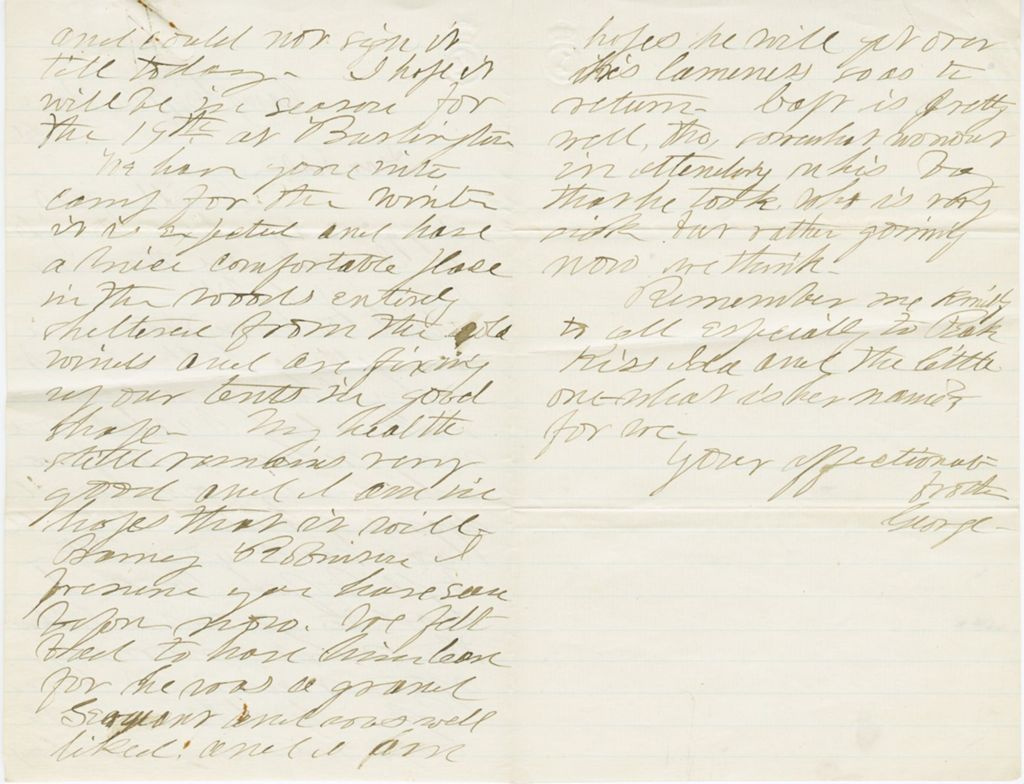 and could not sign it
till today - I hope it
will be in season for
the 19th at Burlington
We have gone into
camp for the winter
it is expected and have
a nice comfortable place
in the woods entirely
sheltered from the cold
winds and are fixing
up our tents in good
shape - My health
still remains very
good and I am in
hopes that it will -
Barney Robinson I
presume you have seen
before now. We felt
bad to have him leave
for he was a grand
Sergeant and was well
liked. and I am
hopes he will get over
this lameness so as to
return - Capt is pretty
well, tho, somewhat
in attending his boy
that he took who is very
sick but rather gaining
now we think -
Remember me kindly
to all especially to
Kiss Ida and the little
one - what is her name?
for me -
Your affectionate
Brother
George -